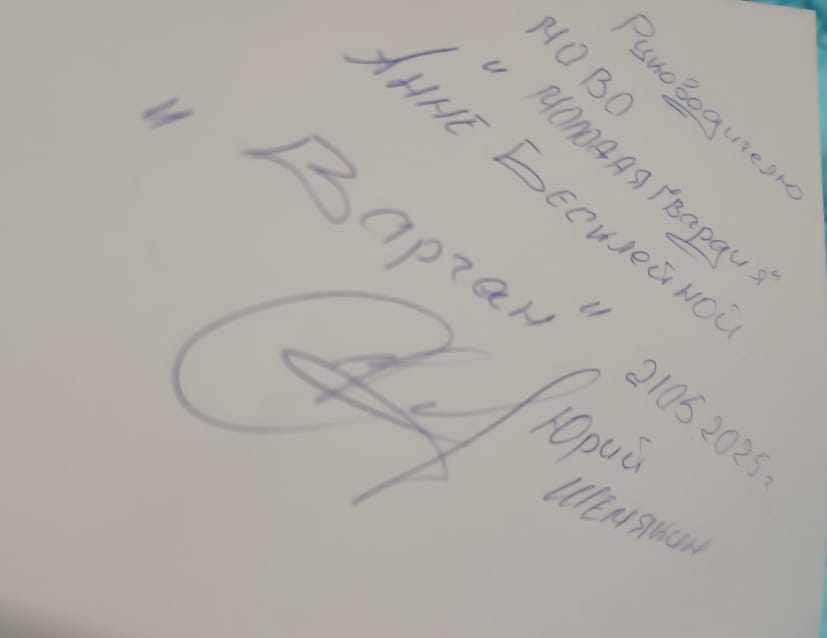 Руководителю
МОВО
"Молодая Гвардия"
Анне Бесклейной
"Варган"
21.05.2025г
Юрий
Шемякин